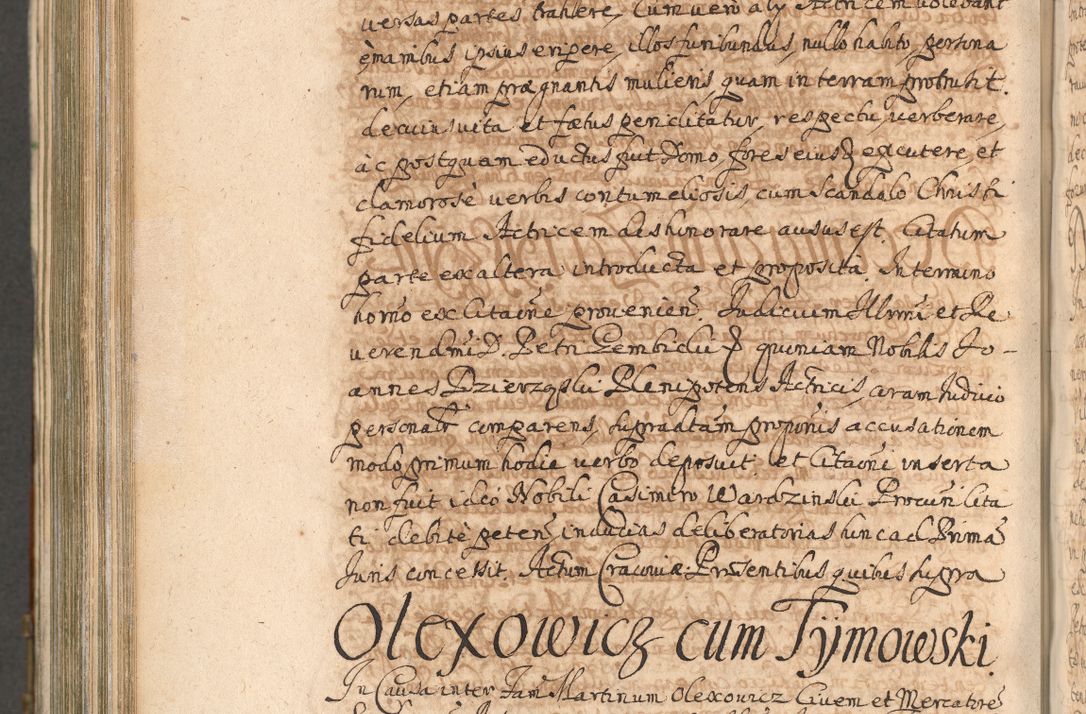 versas partes trahere, Cum vero alÿ Actricem volebant
è manibus ipsius eripere, illos furibundus, nullo habito persona
rum, etiam prægnantis mulieris quam in terram protrusit,
de cuius vita et fœtus periclitatur, respectu, verberare,
àc postquam eductus fuit Domo, fores eiusq excutere, et
clamorosè verbis contumeliosis, cum scandalo Christi
fidelium Actricem dishonorare ausus est. Citatum
parte ex altera introducta et proposita. In termino
horno ex Citatiōe provenien. Iudicium Illrmi et Re
verendmi D. Petri Gembicki quoniam Nobilis Jo-
annes Dzierzqski Plenipotens Actricis, coram Iudicio
personalr comparens, supradtam proponis accusationem
modo primum hodie verbo deposuit, et Citaōni inserta
non fuit ideo Nobili Casimiro Wardzinski Procuri Cita
ti debitè peten inducias deliberatorias hinc ad Prima
Iuris concessit. Actum Cracoviæ. Præsentibus quibus supra
Olexowicz cum Tÿmowski
In Causa inter Fam Martinum Olexowicz Civem et Mercatore